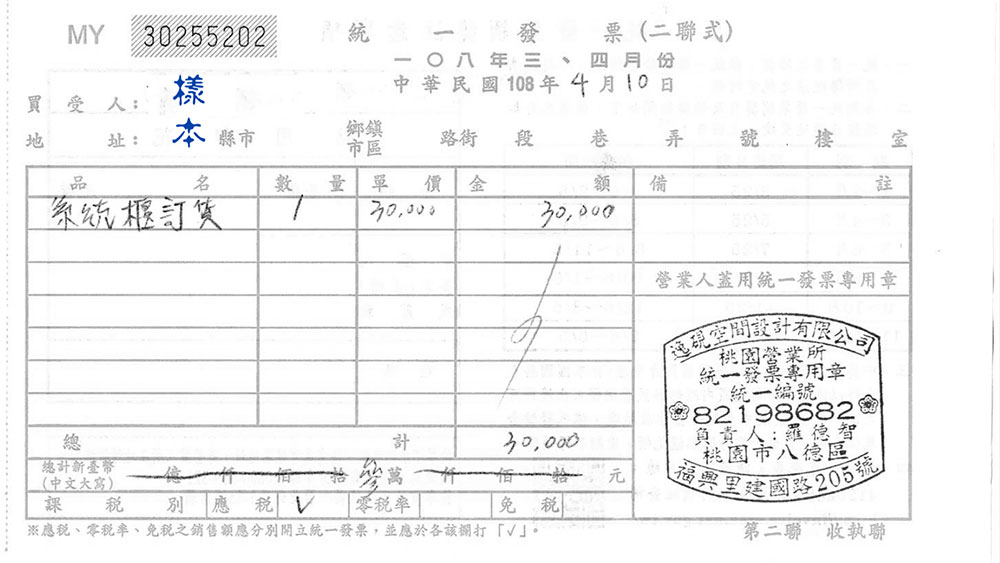 MY 30255202 統一發票(二聯式)
一〇八年三、四月份
中華民國108年4月10日
買受人: 樣本
地址: 縣市 鄉鎮市區 路街 段 巷 弄 號 樓 室
品名 數量 單價 金額 備註
系統櫃訂貨 1 30,000 30,000
營業人蓋用統一發票專用章
逸硯空間設計有限公司
桃園營業所
統一發票專用章
統一編號
82198682
負責人:羅德智
桃園市八德區
福興里建國路205號
總計 30,000
總計新臺幣(中文大寫) 億 仟 佰 拾 參萬 仟 佰 拾 元
課稅別 應稅 V 零稅率 免稅
※應稅、零稅率、免稅之銷售額應分別開立統一發票,並應於各該欄打「√」。
第二聯 收執聯